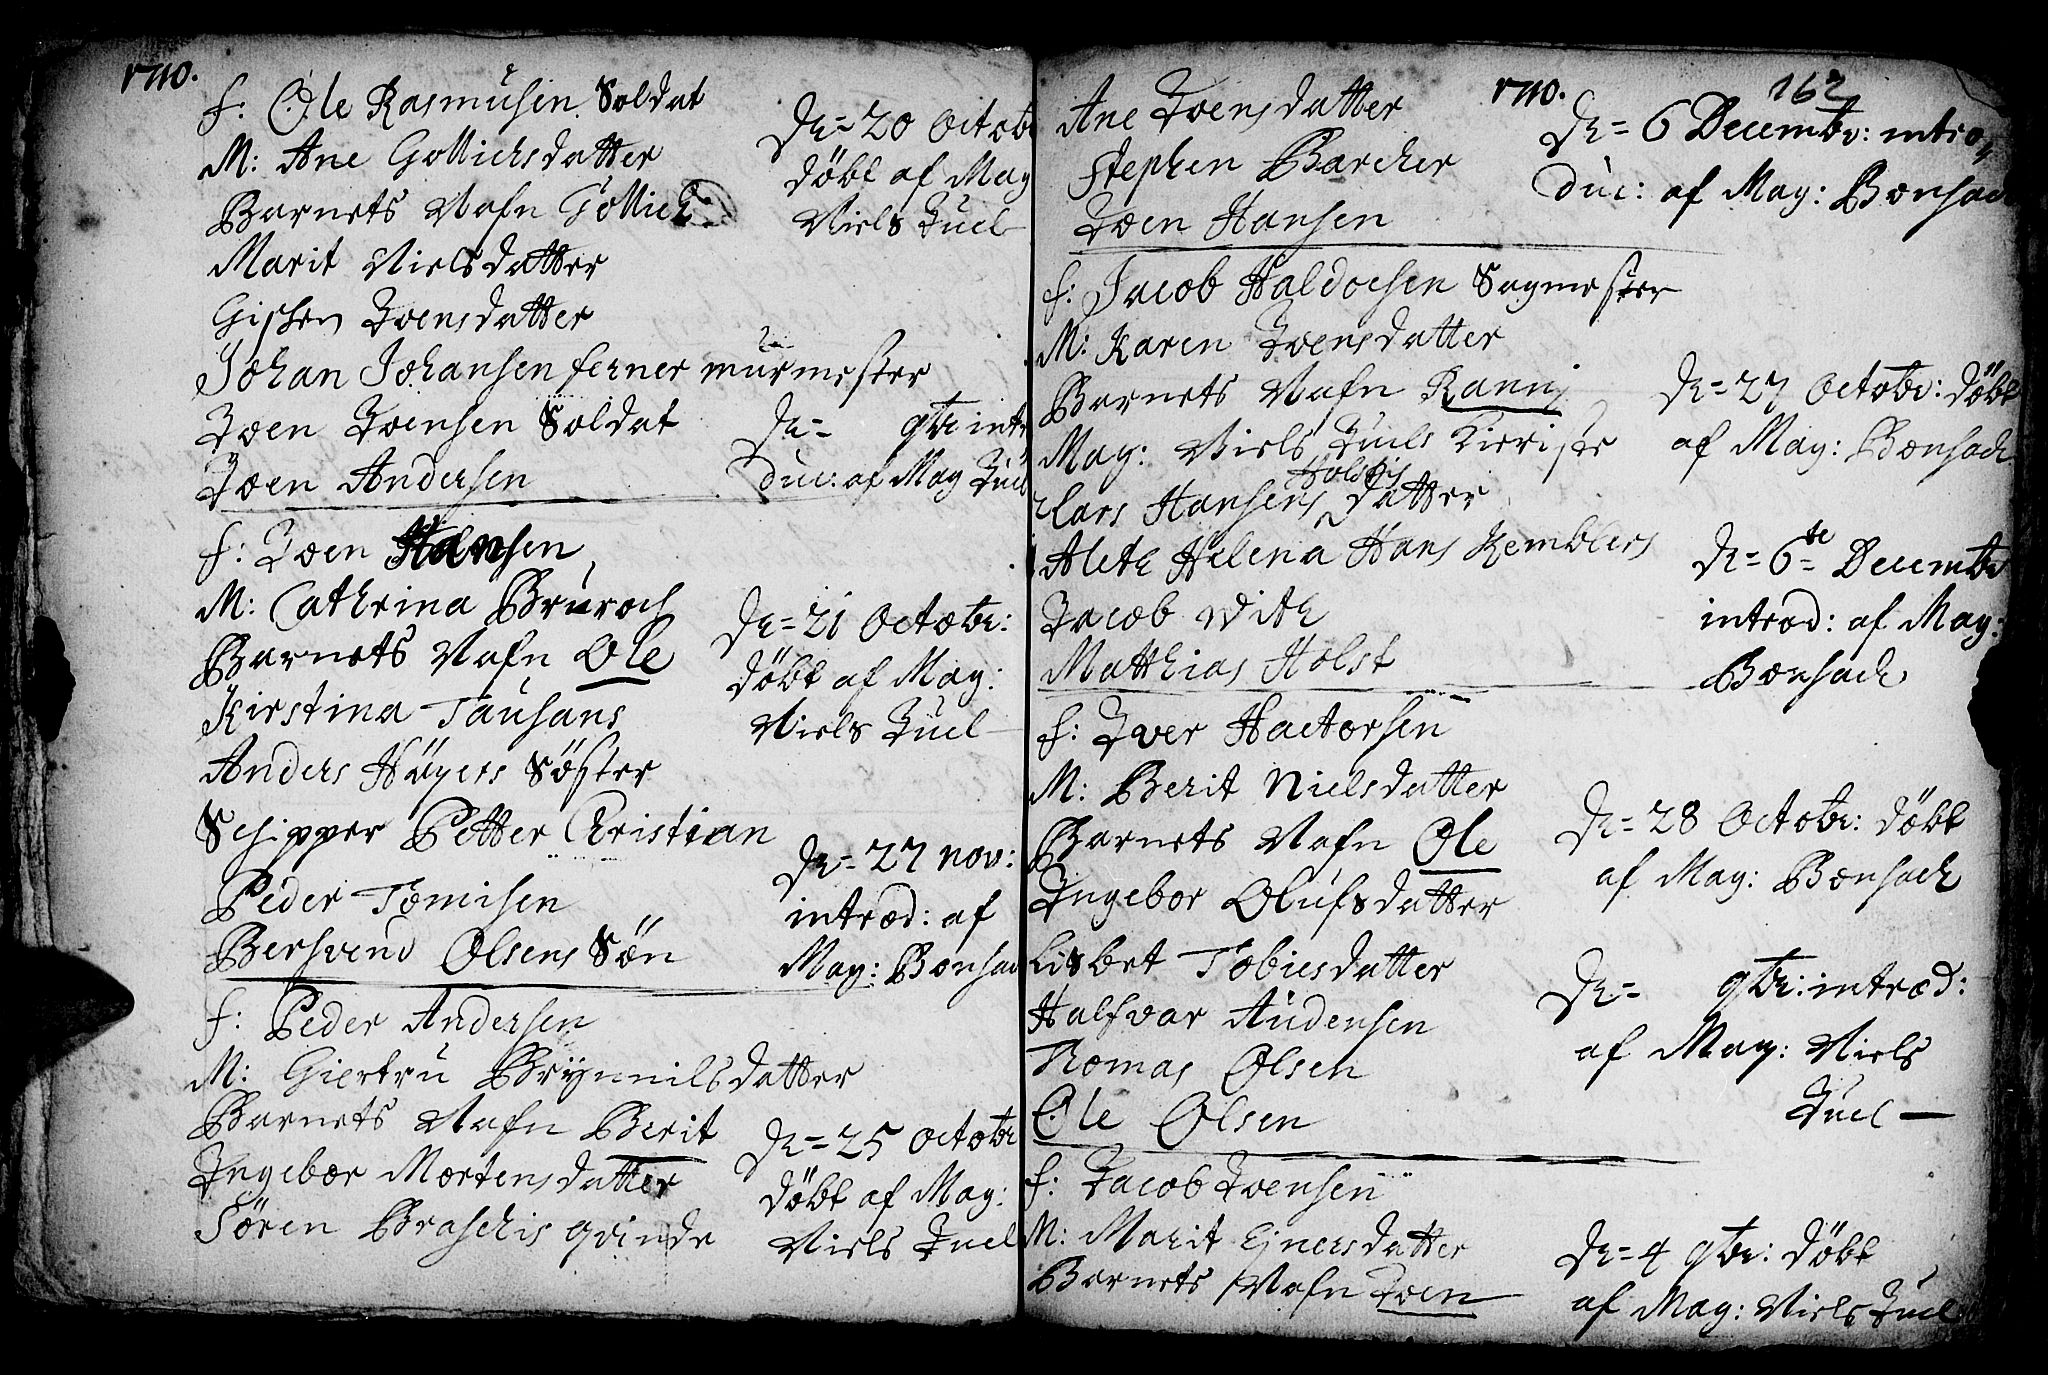 1710.
f: Ole Rasmusen Soldat
M: Ane Gollichsdatter
Barnets Nafn Gollich
Marit Nielsdatter
Joensdatter
Johan Johansen ferner murmester
Joen Joensen Soldat
Joen Andersen
d= 20 Octobr
döbt af Mag
Niels Juel
d= 9br intro
duc: af Mag Juel
f: Joen Hansen
M: Cathrina Bruroch
Barnets Nafn Ole
Kirstina Tausans
Anders Höyers Söster
Schipper Petter Christian
Peder Tomisen
Bersvend Olsens Sön
d= 21 Octobr:
döbt af Mag:
Niels Juel
d= 27 nov:
introd: af
Mag: Bonsac
f: Peder Andersen
M: Giertru Brynnilsdatter
Barnets Nafn Berit
Ingebor Mortensdatter
Sören Braschis qvinde
d= 25 Octobr
döbt af Mag:
Niels Juel
1710.
162
Ane Joensdatter
Stephen Barcher
Joen Hansen
d= 6 Decembr: intro
duc: af Mag: Bonsach
f: Jacob Haldorsen Sagmester
M: Karen Joensdatter
Barnets Nafn Ranni
Mag: Niels Juels Kieriste
Lars Hansens Holstis datter
Aleth Helena Hans Kemblers
Jacob With
Matthias Holst
d= 27 Octobr: döbt
af Mag: Bonsach
d= 6te Decembr
introd: af Mag:
Bonsach
f: Iver Hactorsen
M: Berit Nielsdatter
Barnets Nafn Ole
Ingebor Olufsdatter
Lisbet Tobiesdatter
Halfvar Audensen
Thomas Olsen
Ole Olsen
d= 28 Octobr: döbt
af Mag: Bonsach
d= 9br: introd:
af Mag: Niels
Juel
f: Jacob Joensen
M: Marit Ejnersdatter
Barnets Nafn Joen
d= 4 9br: döbt
af Mag: Niels Juel